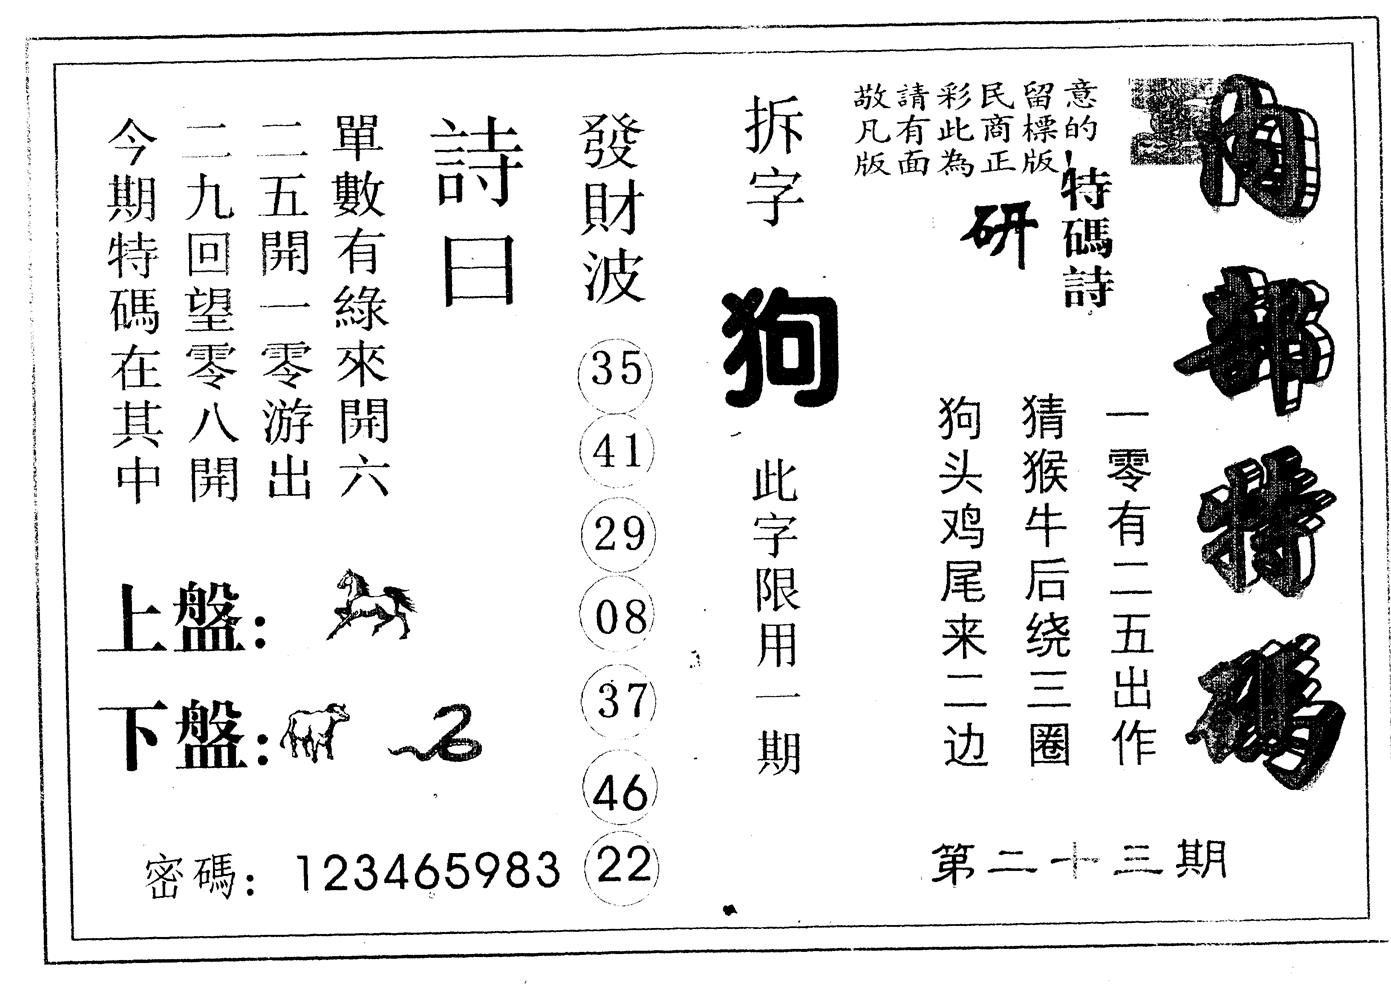 內部特碼
意的
留標版
民商正
彩此為
請有面
敬凡版
特碼詩
研
一零有二五出作
猜猴牛后绕三圈
狗头鸡尾来二边
第二十三期
拆字
狗
此字限用一期
發財波
35
41
29
08
37
46
22
詩曰
單數有綠來開六
二五開一零游出
二九回望零八開
今期特碼在其中
上盤：
下盤：
密碼：123465983